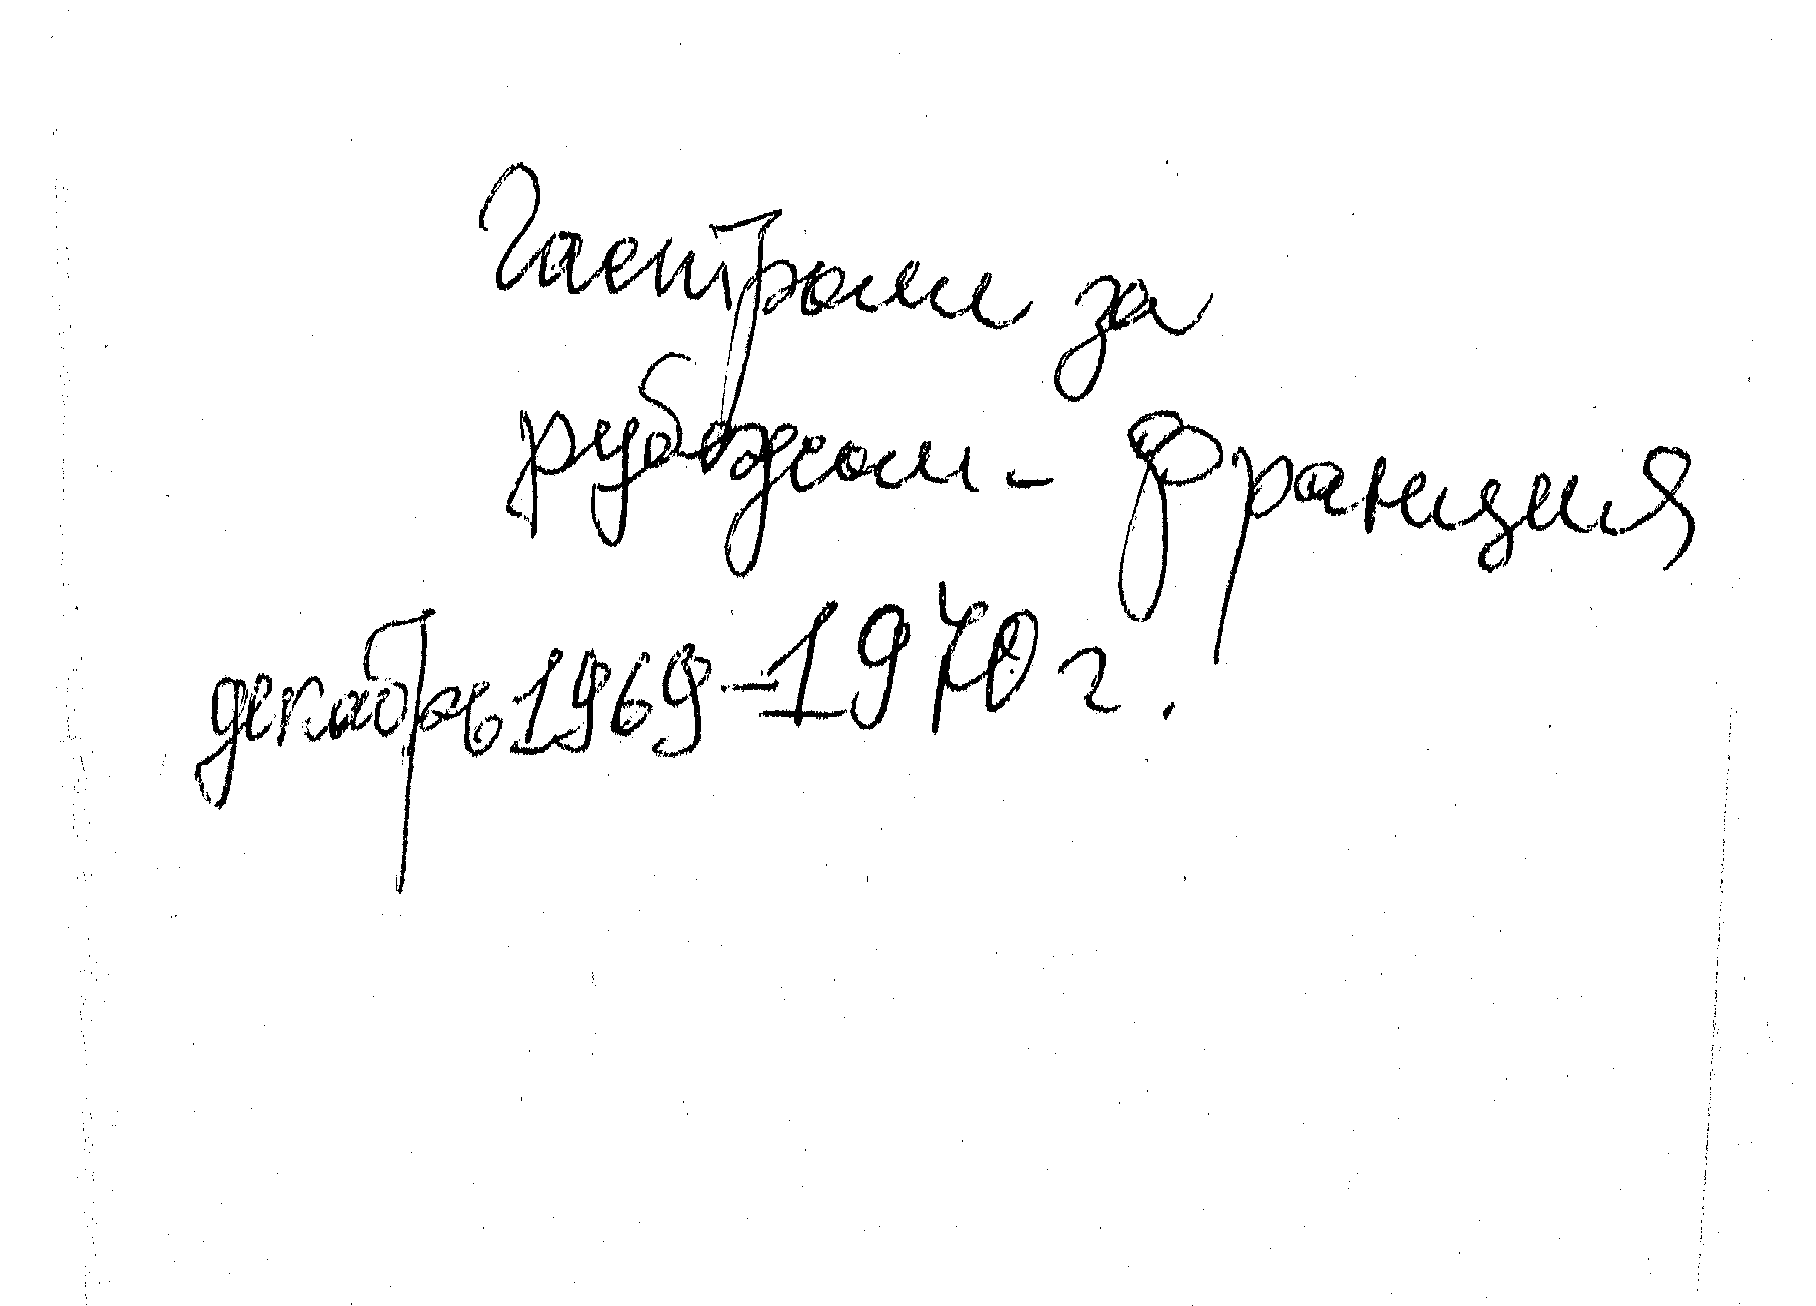 Гастроли за
рубежом - Франция
декабрь 1969-1970 г.